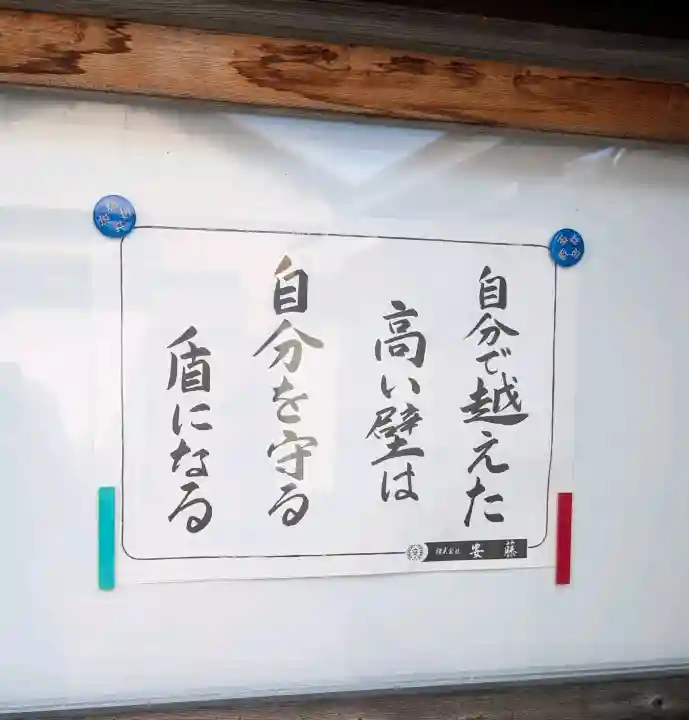 自分で越えた
高い壁は
自分を守る
盾になる
株式会社 安藤